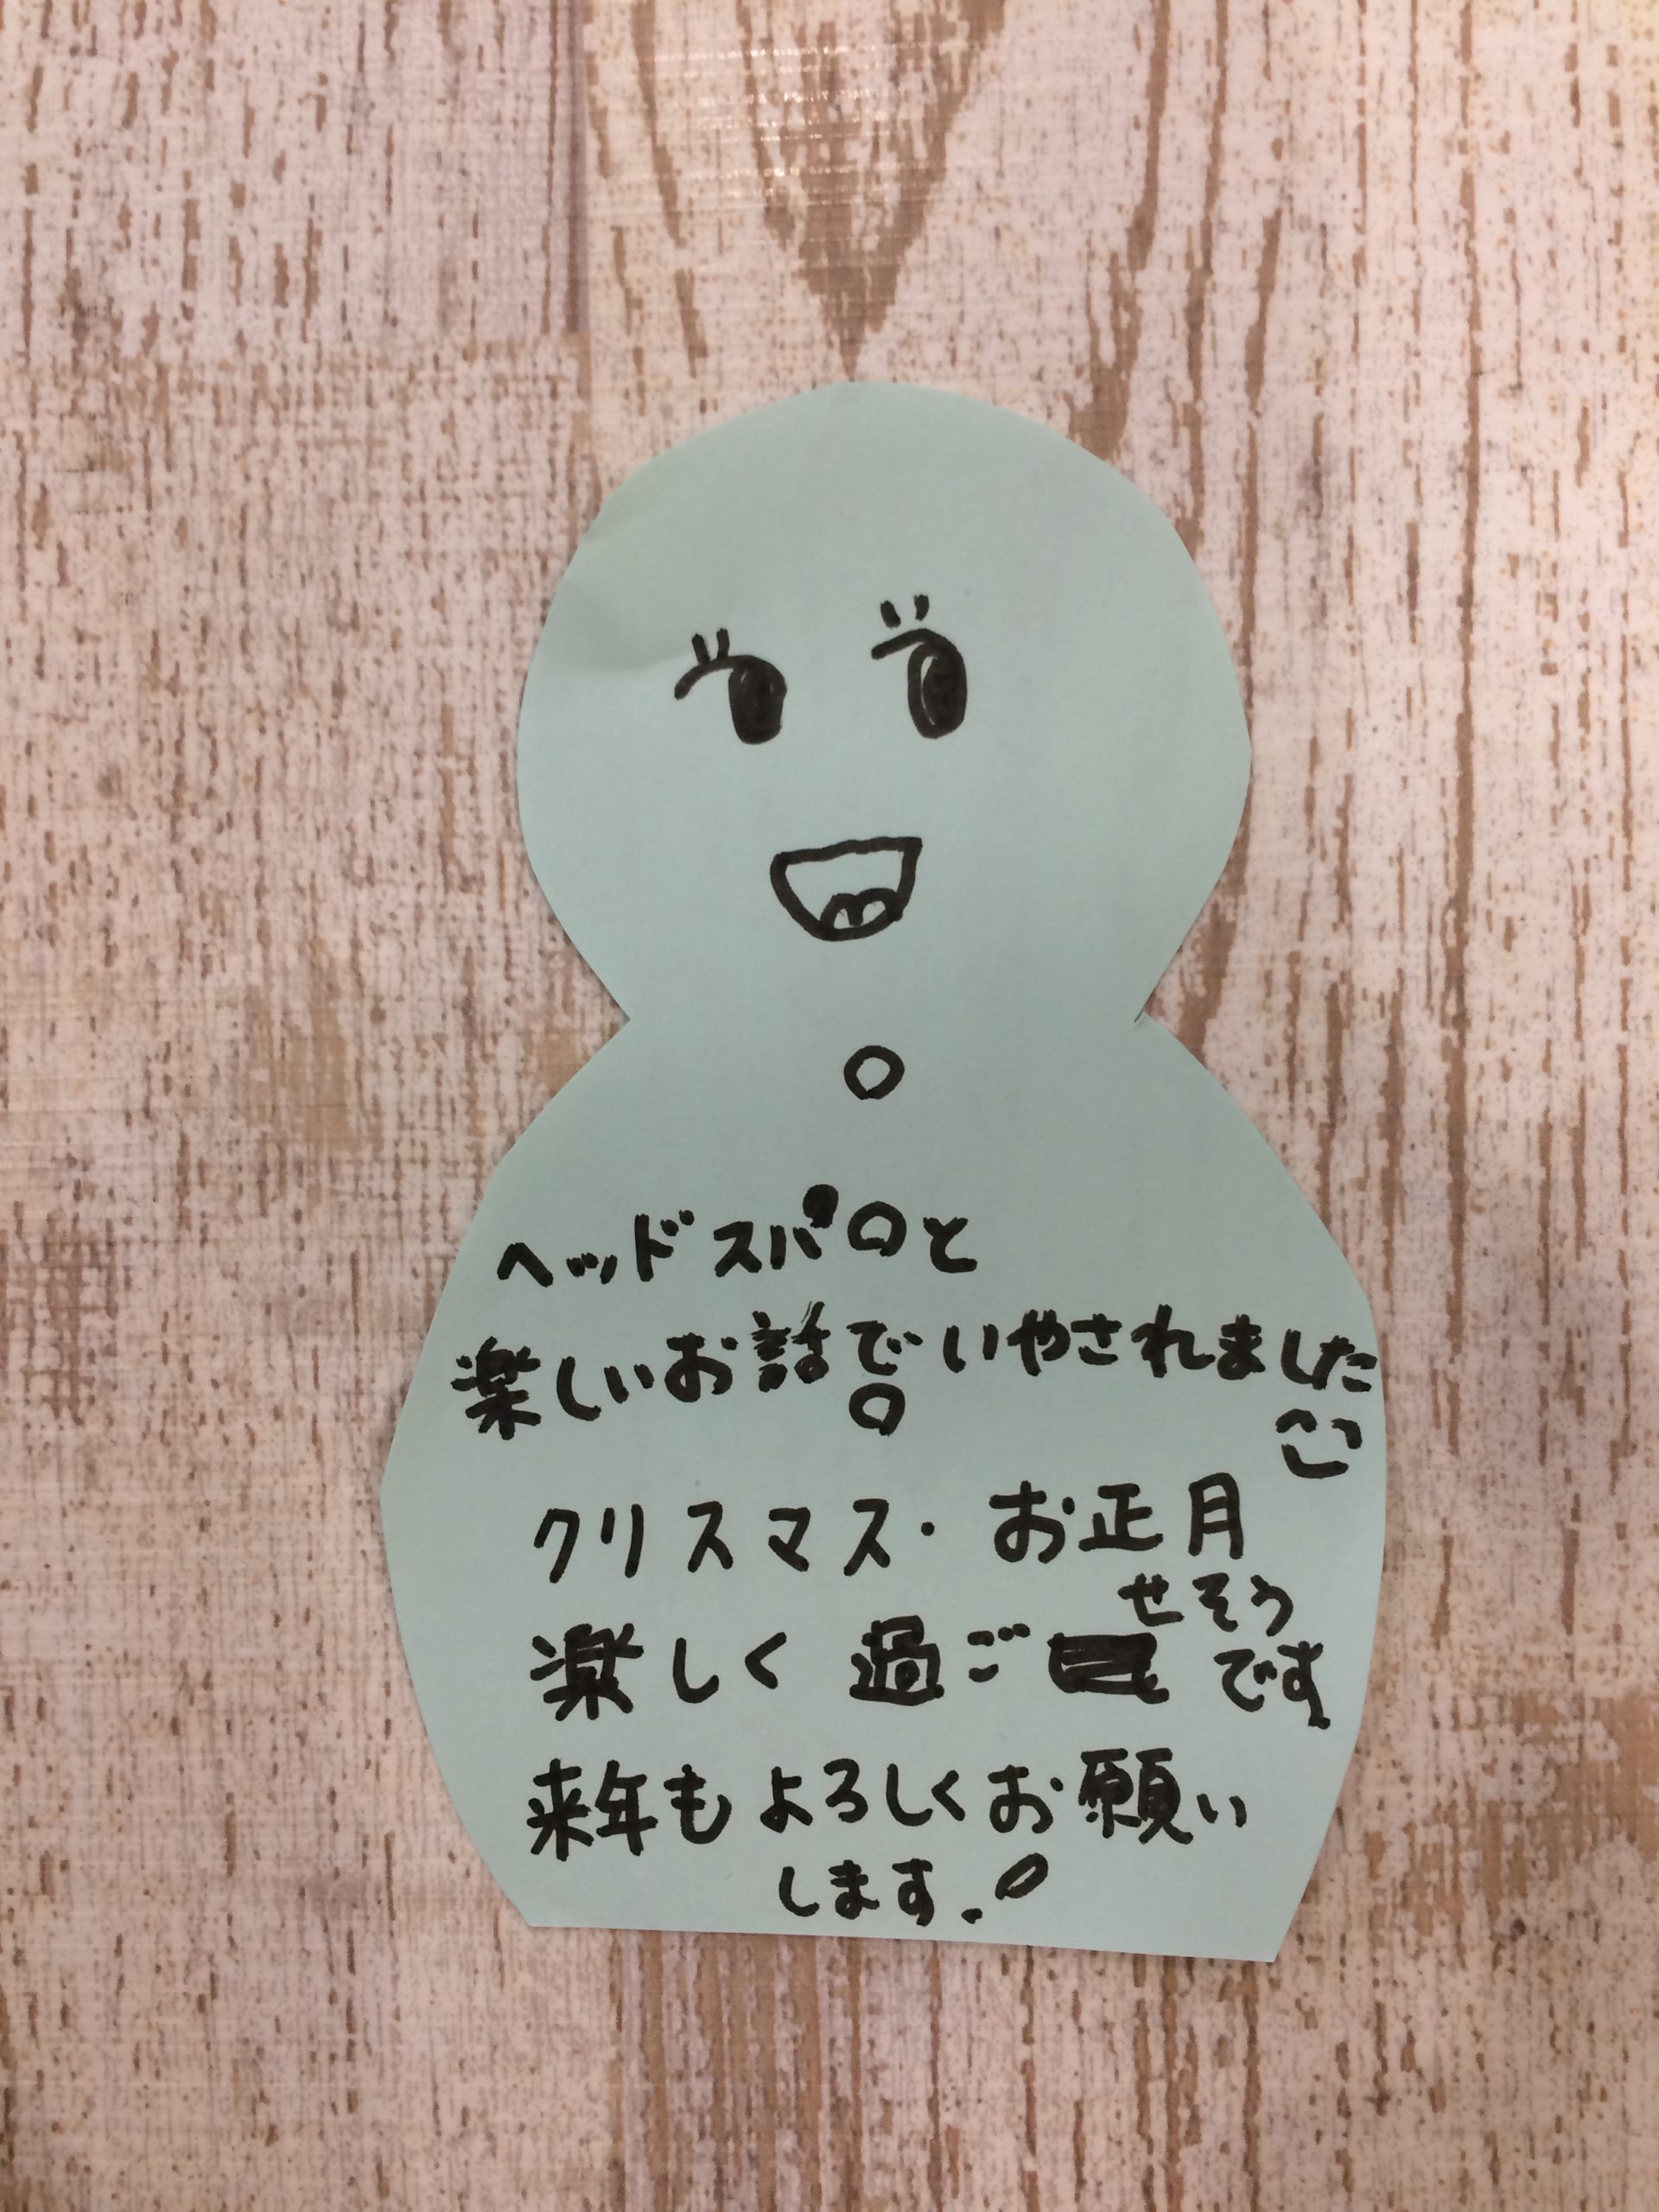 ヘッドスパと
楽しいお話でいやされました
クリスマス・お正月
楽しく過ごせそうです
来年もよろしくお願い
します!